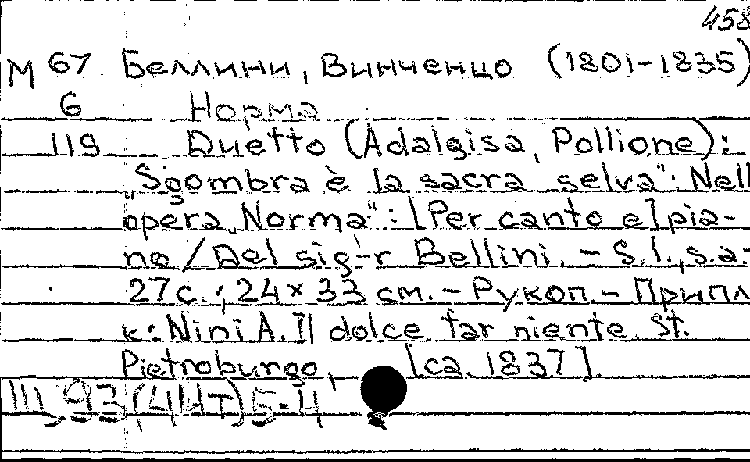 458
М 67 Беллини, Винченцо (1801-1835)
6 Норма
119 Duetto (Adalgisa, Pollione):
„Sgombra è la sacra selva": Nell
opera „Norma": [Per canto e] pia-
no / Del sig-r Bellini. – S.l., s.a.-
27 с.; 24 × 33 см. – Рукоп. – Припл
к: Nini A. Il dolce far niente. St.
Pietroburgo, [ca. 1837].
III, 93 (4ИТ) 5-4